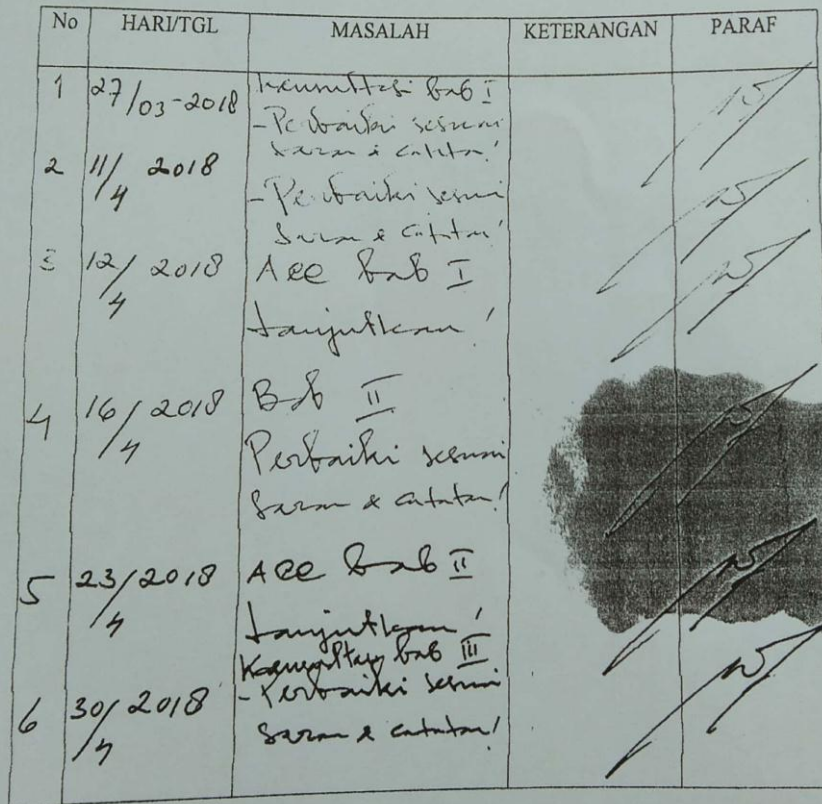 No HARI/TGL MASALAH KETERANGAN PARAF
1 27/03-2018 Konsultasi bab I
- Perbaiki sesuai
saran & catatan!
2 11/4 2018
- Perbaiki sesuai
saran & catatan!
3 12/4 2018 Acc bab I
Lanjutkan!
4 16/4 2018 Bab II
Perbaiki sesuai
saran & catatan!
5 23/4 2018 Acc bab II
Lanjutkan!
Konsultasi bab III
6 30/4 2018 - Perbaiki sesuai
saran & catatan!